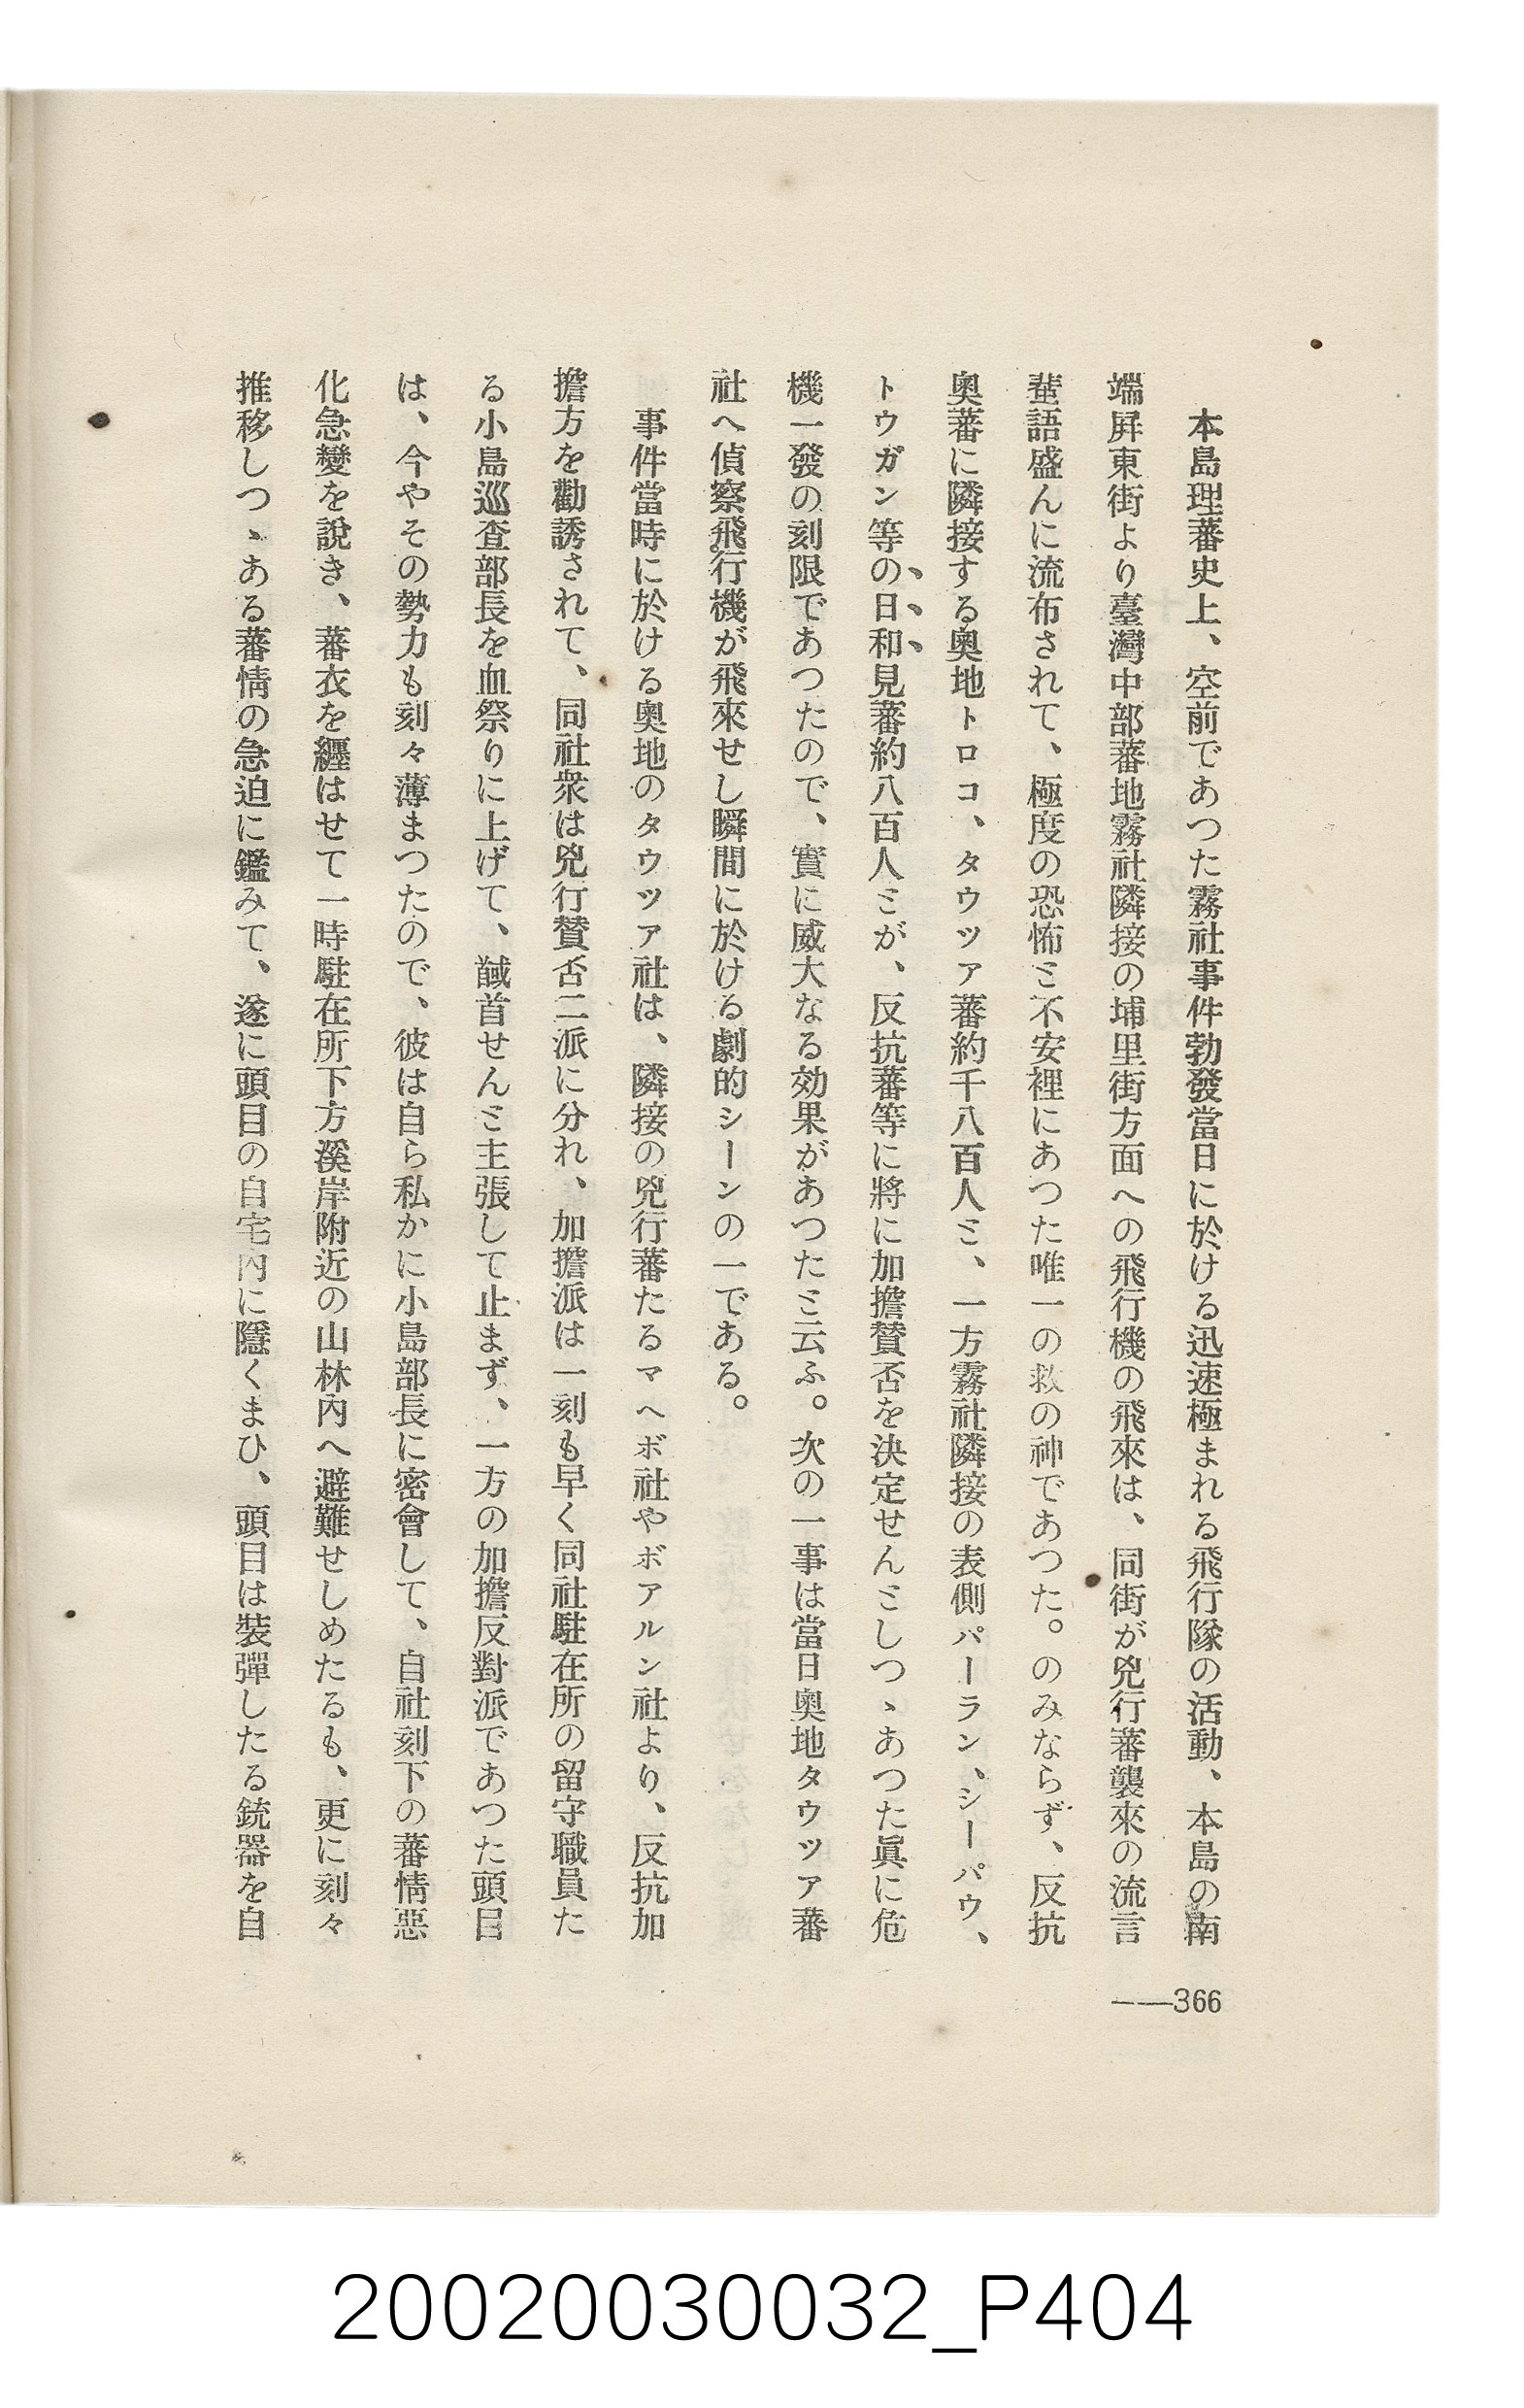 本島理蕃史上、空前であつた霧社事件勃發當日に於ける迅速極まれる飛行隊の活動、本島の南
端屛東街より臺灣中部蕃地霧社隣接の埔里街方面への飛行機の飛來は、同街が兇行蕃襲來の流言
蜚語盛んに流布されて、極度の恐怖ミ不安裡にあつた唯一の救の神であつた。のみならず、反抗
奧蕃に隣接する奧地トロコ、タウツア蕃約千八百人ミ、一方霧社隣接の表側パーラン、シーパウ、
トウガン等の日和見蕃約八百人ミが、反抗蕃等に將に加擔贊否を決定せんミしつゝあつた眞に危
機一發の刻限であつたので、實に威大なる効果があつたミ云ふ。次の一事は當日奧地タウツア蕃
社へ偵察飛行機が飛來せし瞬間に於ける劇的シーンの一である。
事件當時に於ける奧地のタウツア社は、隣接の兇行蕃たるマヘボ社やボアルン社より、反抗加
擔方を勸誘されて、同社衆は兇行贊否二派に分れ、加擔派は一刻も早く同社駐在所の留守職員た
る小島巡査部長を血祭りに上げて、馘首せんミ主張して止まず、一方の加擔反對派であつた頭目
は、今やその勢力も刻々薄まつたので、彼は自ら私かに小島部長に密會して、自社刻下の蕃情惡
化急變を說き、蕃衣を纒はせて一時駐在所下方溪岸附近の山林內へ避難せしめたるも、更に刻々
推移しつゝある蕃情の急迫に鑑みて、遂に頭目の自宅內に隱くまひ、頭目は裝彈したる銃器を自
――366
20020030032_P404